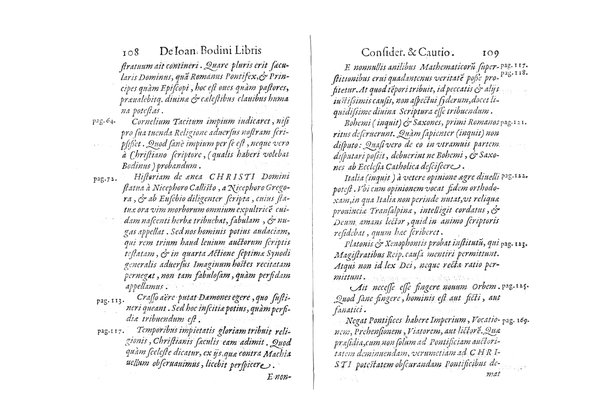 108 De Ioan. Bodini Libris
stratuum ait contineri. Quare pluris erit sæcu-
laris Dominus, quā Romanus Pontifex, & Prin-
cipes quàm Episcopi, hoc est oues quàm pastores,
præualebitq. diuina & cælestibus clauibus huma
na potestas.
pag. 64. Cornelium Tacitum impium iudicaret, nisi
pro sua tuenda Religione aduersus nostram scri-
psisset. Quod sanè impium per se est, neque verò
à Christiano scriptore, (qualis haberi volebas
Bodinus) probandum.
pag. 72. Historiam de ænea CHRISTI Domini
statua à Nicephoro Callisto, a Nicephoro Grego-
ra, & ab Eusebio diligenter scripta, cuius sta-
tuæ ora vim morborum omnium expultricē cui-
dam nascenti herbæ tribuebat, fabulam, & nu-
gas appellat. Sed hoc nos potius audaciam,
qui rem trium haud leuium auctorum scriptis
testatam, & in quarta Actione septimæ Synodi
generalis aduersus Imaginum hostes recitatam
pernegat, non tam fabulosam, quàm perfidam
appellamus.
pag. 113. Crasso aëre putat Dæmones egere, quo susti-
neri queant. Sed hoc inscitia potius, quàm perfi-
diæ tribuendum est.
pag. 117. Temporibus impietatis gloriam tribuit reli-
gionis, Christianis sæculis eam adimit. Quod
quàm sceleste dicatur, ex ijs quæ contra Machia
uellum obseruauimus, licebit perspicere.
E non-
Consider. & Cautio. 109
E nonnullis anilibus Mathematicorū super- pag. 117.
stitionibus erui quadantenus veritatē posse pro- pag. 118.
fitetur. At quod tēpori tribuid, id peccatis & alijs
iustissimis causis, non aspectui syderum, docet li-
quidissimè diuina Scriptura esse tribuendum.
Bohemi (inquit) & Saxones, primi Romanos pag. 121.
ritus desseruerunt. Quàm sapienter (inquit) non
disputo: Quasi vero de eo in vtramuis partem
disputari possit, debuerint ne Bohemi, & Saxo-
nes ab Ecclesia Catholica desciscere.
Italia (inquit) à vetere opinione ægre diuelli pag. 122.
potest. Voi cum opinionem vocat fidem orthodo-
xam, in qua Italia non perinde nutat, vt reliqua
prouincia Transalpina, intelligit cordatus, &
Deum amans lector, quid in animo scriptoris
residebat, quum hæc scriberet.
Platonis & Xenophontis probat institutū, qui pag. 123.
Magistratibus Reip. causa mentiri permittunt.
Atqui non id lex Dei, neque recta ratio per-
mittunt.
Ait necesse esse fingere nouum Orbem. pag. 125.
Quod somniare, hominis est aut ficti, aut
fanatici.
Negat Pontifices habere Imperium, Vocatio- pag. 169.
nem, Prehensionem, Viatorem, aut lictorē. Quæ
præsidia, cum non solùm ad Pontificiam auctori-
tatem deminuendam, verumetiam ad CHRI-
STI potestatem obscurandam Pontificibus de-
mat